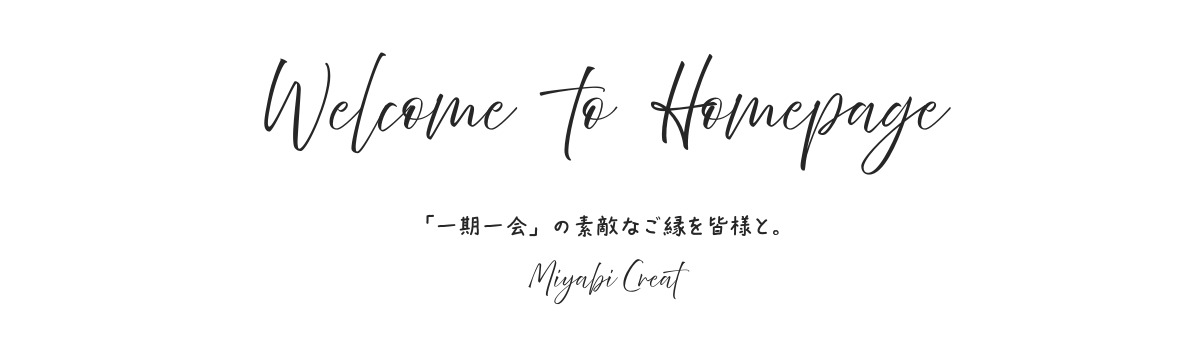 Welcome to Homepage
「一期一会」の素敵なご縁を皆様と。
Miyabi Creat